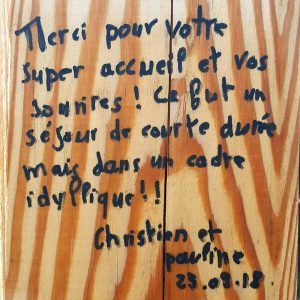 Merci pour votre
super accueil et vos
sourires ! Ce fut un
séjour de courte durée
mais dans un cadre
idyllique !!
Christien et
pauline
23.03.18.